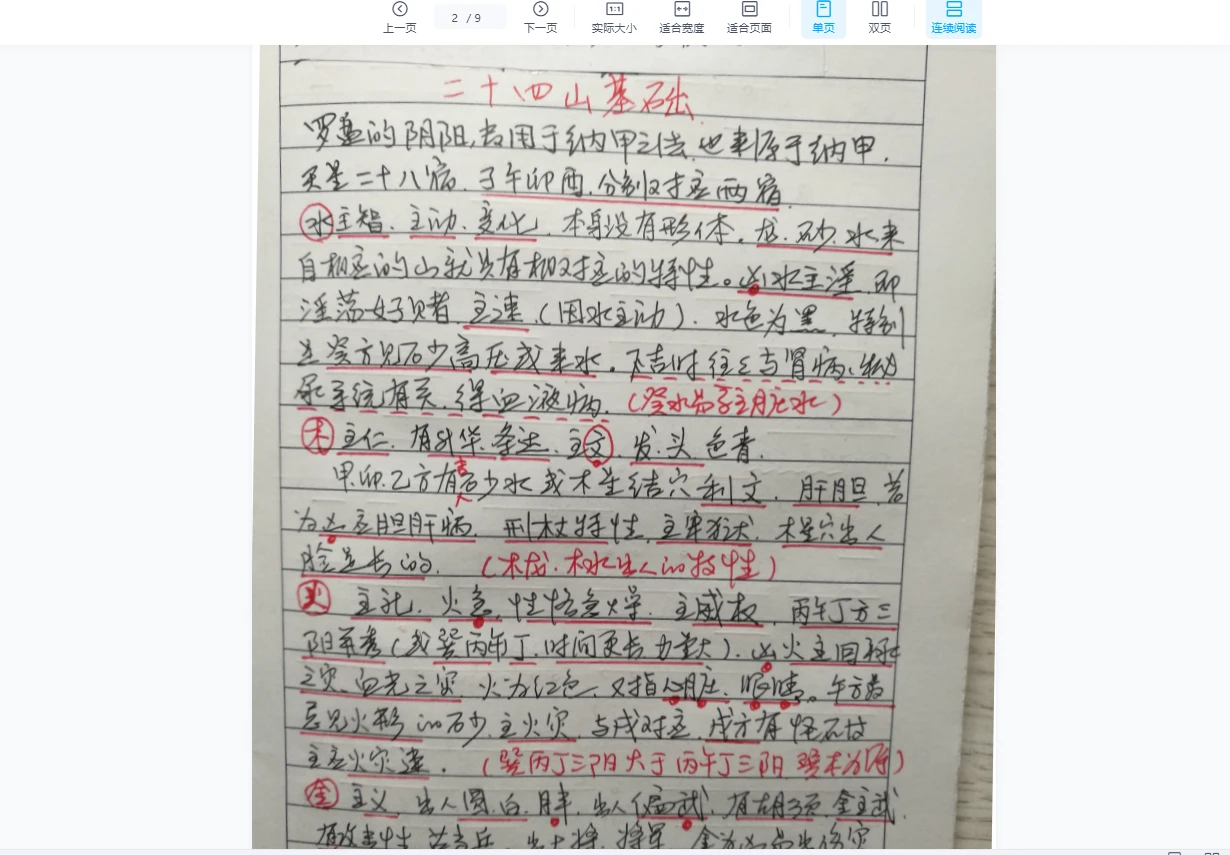 上一页
2 / 9
下一页
1:1
实际大小
适合宽度
适合页面
单页
双页
连续阅读
二十四山基础
罗盘的阴阳,去用于纳甲之法,也来源于纳甲,
天星二十八宿,子午卯酉,分别对应两宿
水主智,主动,变化,本身没有形体。龙.砂.水来
自相应的山就具有相对应的特性。凶水主淫,即
淫荡好 者,主速(因水主动).水色为黑,特别
是癸方见砂高压或来水。不吉时往往与肾病、泌
尿系统有关,得血液病.
木主仁,有升华条达,主文,发,头,色青.
甲卯乙方有吉砂水或木星结穴利文,肝胆,若
为凶主胆肝病,刑杖特性,主牢狱,木星穴出人
脸是长的.(木龙.木水出人的特性)
火 主礼,火急,性格急火学,主威权,丙午丁方三
阳开秀(或巽丙午丁,时间更长力量大),凶火主回禄
之灾,血光之灾,火为红色,又指心脏,眼睛。午方若
见火形的砂,主火灾,与戌对应,戌方有怪石拉
主应火灾 .(巽丙丁三阳大于丙午丁三阳
金 主义,出人圆,白,胖,出人 武,有胡须,金主武,
出大将,将军,